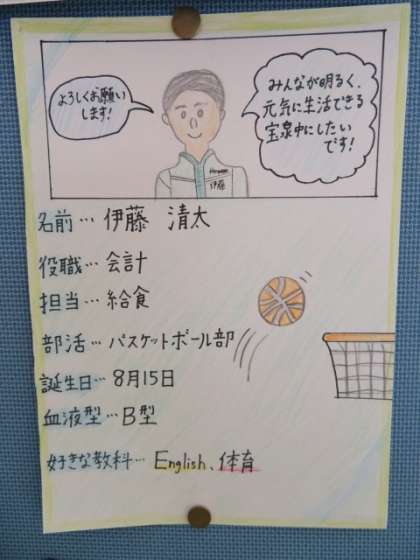 よろしくお願い
します!
みんなが明るく、
元気に生活できる
宝泉中にしたい
です!
伊藤
名前…伊藤 清太
役職…会計
担当…給食
部活…バスケットボール部
誕生日…8月15日
血液型…B型
好きな教科…English、体育